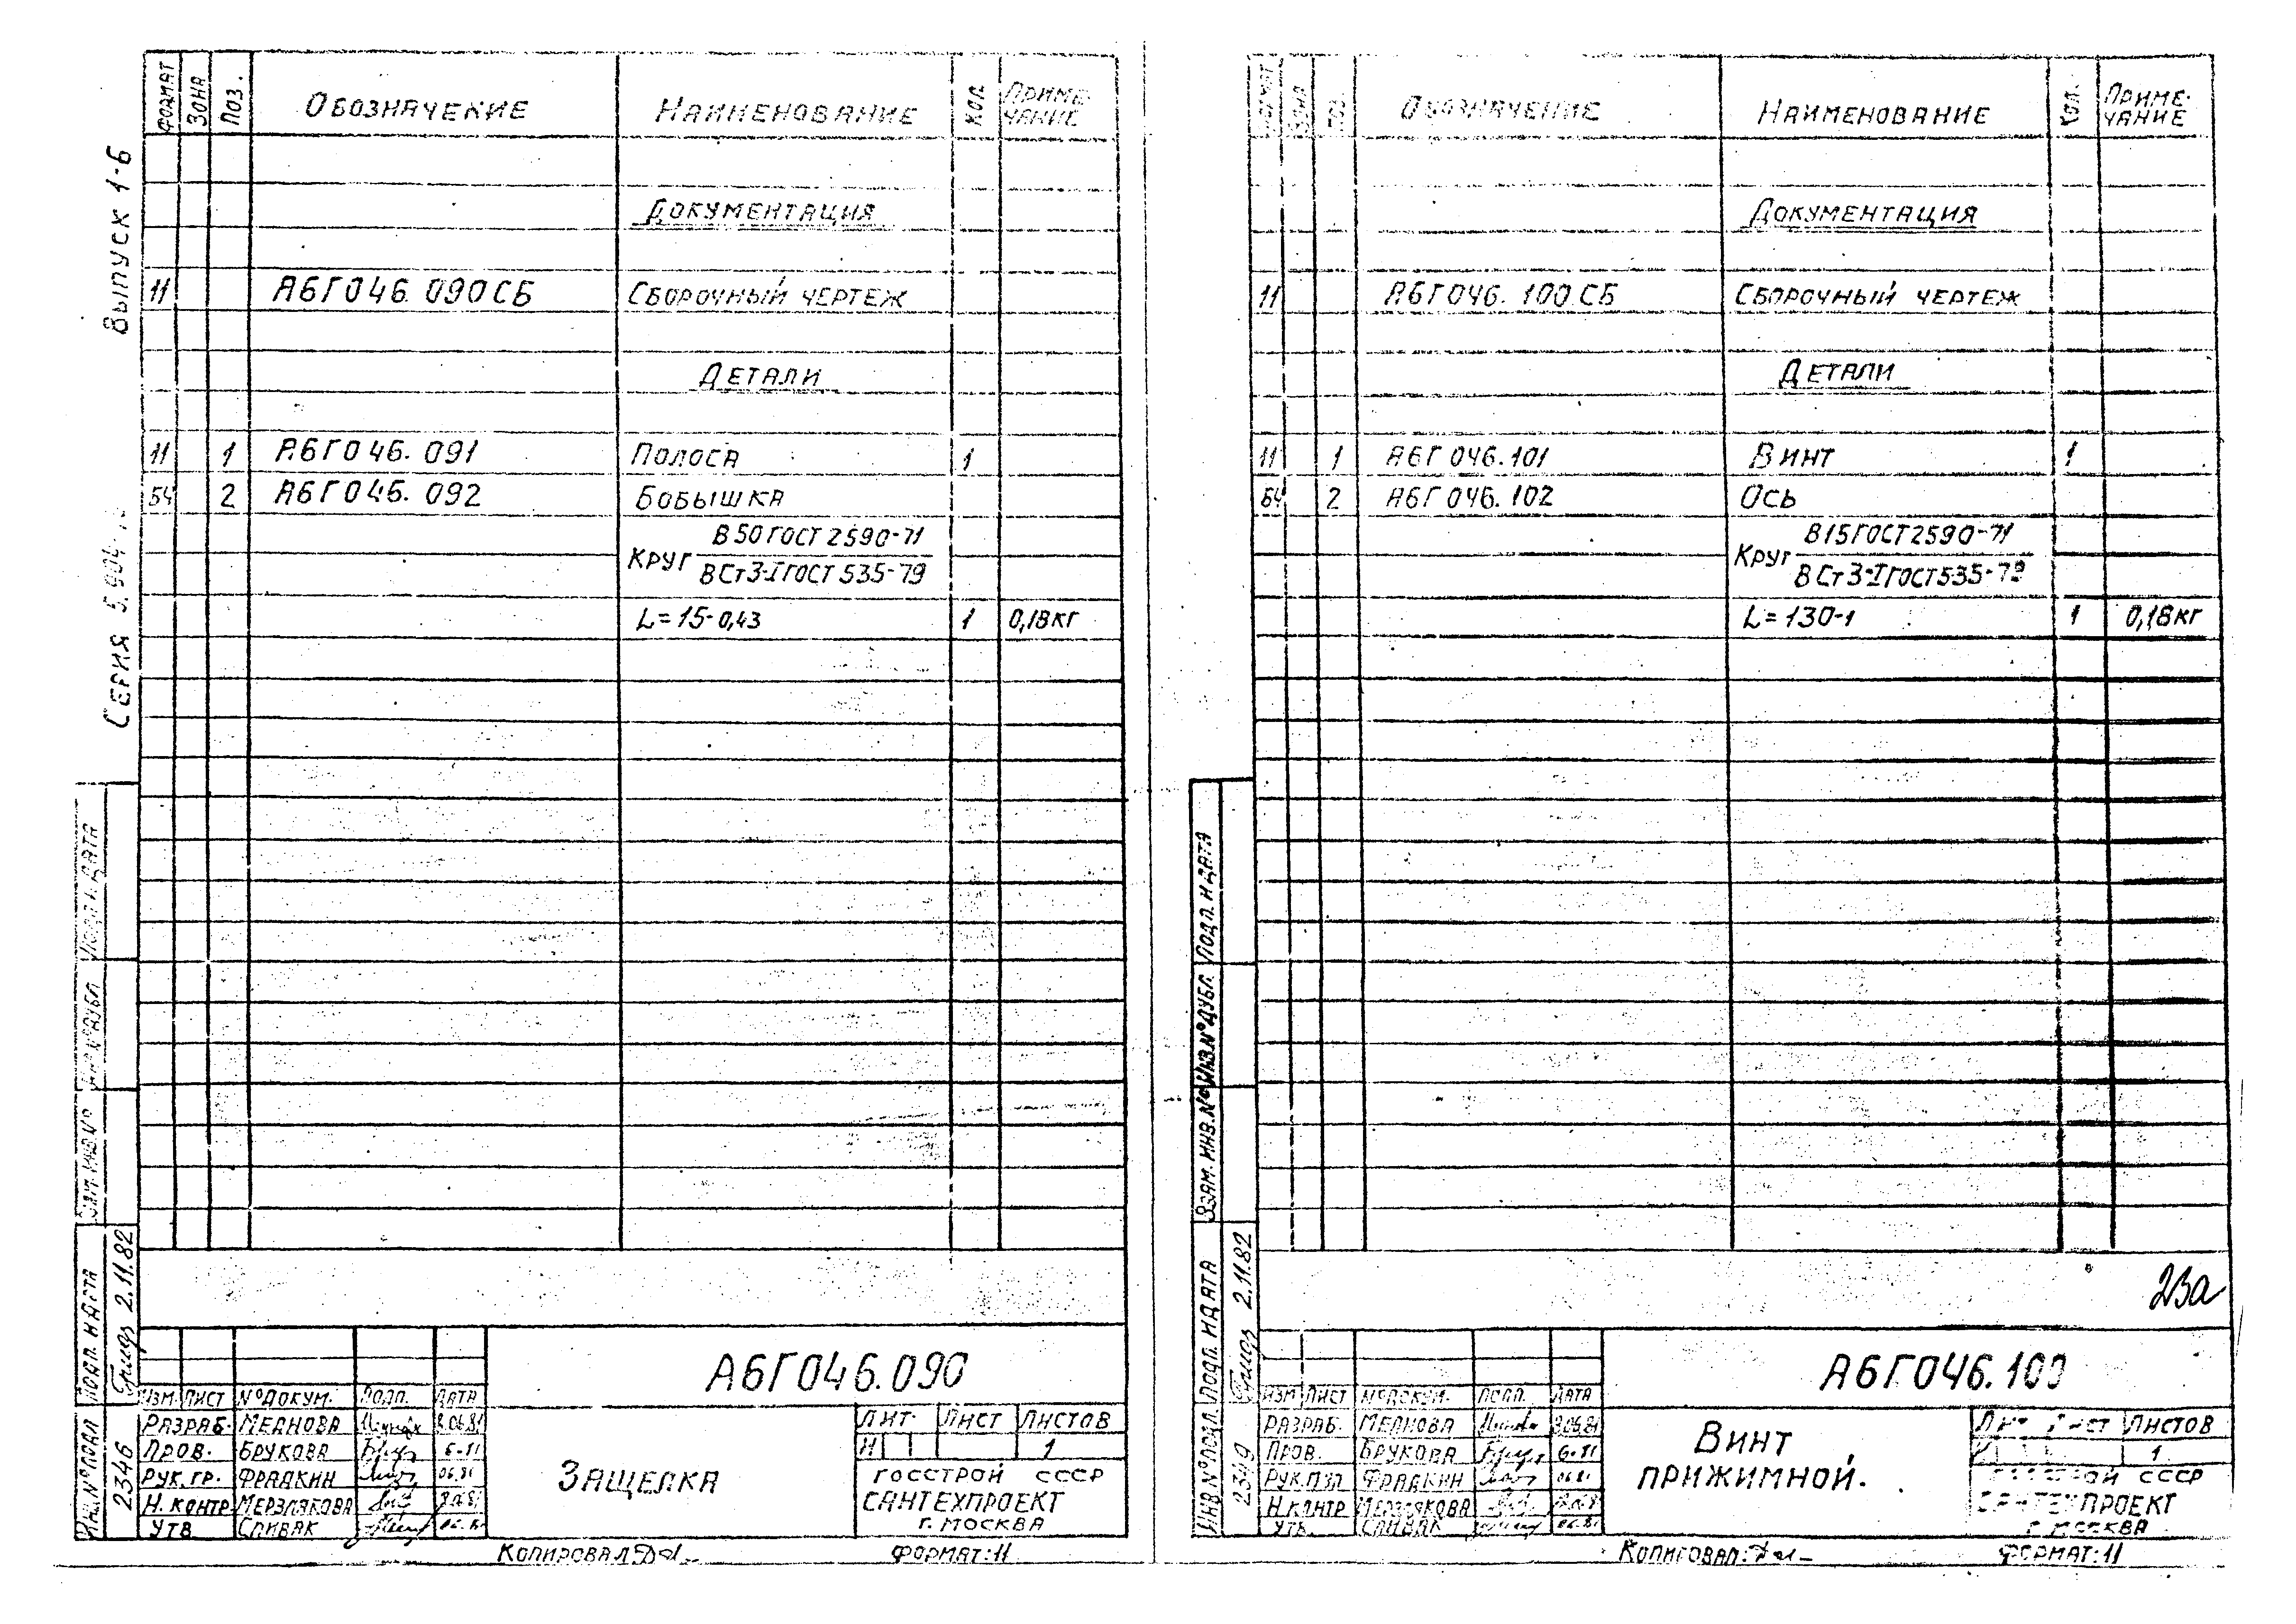 Выпуск 1-6
Серия 5.904-
ФОРМАТ ЗОНА Поз. Обозначение Наименование Кол. Приме-
чание
Документация
11 А6Г046.090СБ Сборочный чертеж
Детали
11 1 А6Г046.091 Полоса 1
БЧ 2 А6Г046.092 Бобышка
Круг В50 ГОСТ 2590-71
ВСт3-I ГОСТ 535-79
L=15-0,43 1 0,18кг
Подп. и дата
Инв.№ дубл.
Взам. инв.№
Подп. и дата 2.11.82
Инв.№ подл. 2346
А6Г046.090
Изм. Лист №докум. Подп. Дата
Разраб. Меднова 06.81
Пров. Брукова 6-81
Рук.гр. Фрадкин 06.81
Н.контр. Мерзлякова
Утв. Спивак
Защелка
Лит. Лист Листов
И 1
Госстрой СССР
Сантехпроект
г. Москва
Копировал Формат: 11
Поз. Обозначение Наименование Кол. Приме-
чание
Документация
11 А6Г046.100СБ Сборочный чертеж
Детали
11 1 А6Г046.101 Винт 1
БЧ 2 А6Г046.102 Ось
Круг В15 ГОСТ 2590-71
ВСт3-I ГОСТ 535-79
L=130-1 1 0,18кг
Подп. и дата
Инв.№ дубл.
Взам. инв.№
Подп. и дата 2.11.82
Инв.№ подл. 2349
23а
А6Г046.100
Изм. Лист №докум. Подп. Дата
Разраб. Меднова 06.81
Пров. Брукова 6-81
Фрадкин 06.81
Н.контр. Мерзлякова
Утв. Спивак 06.81
Винт
прижимной.
Лит. Лист Листов
И 1
Госстрой СССР
Сантехпроект
г. Москва
Копировал: Формат: 11